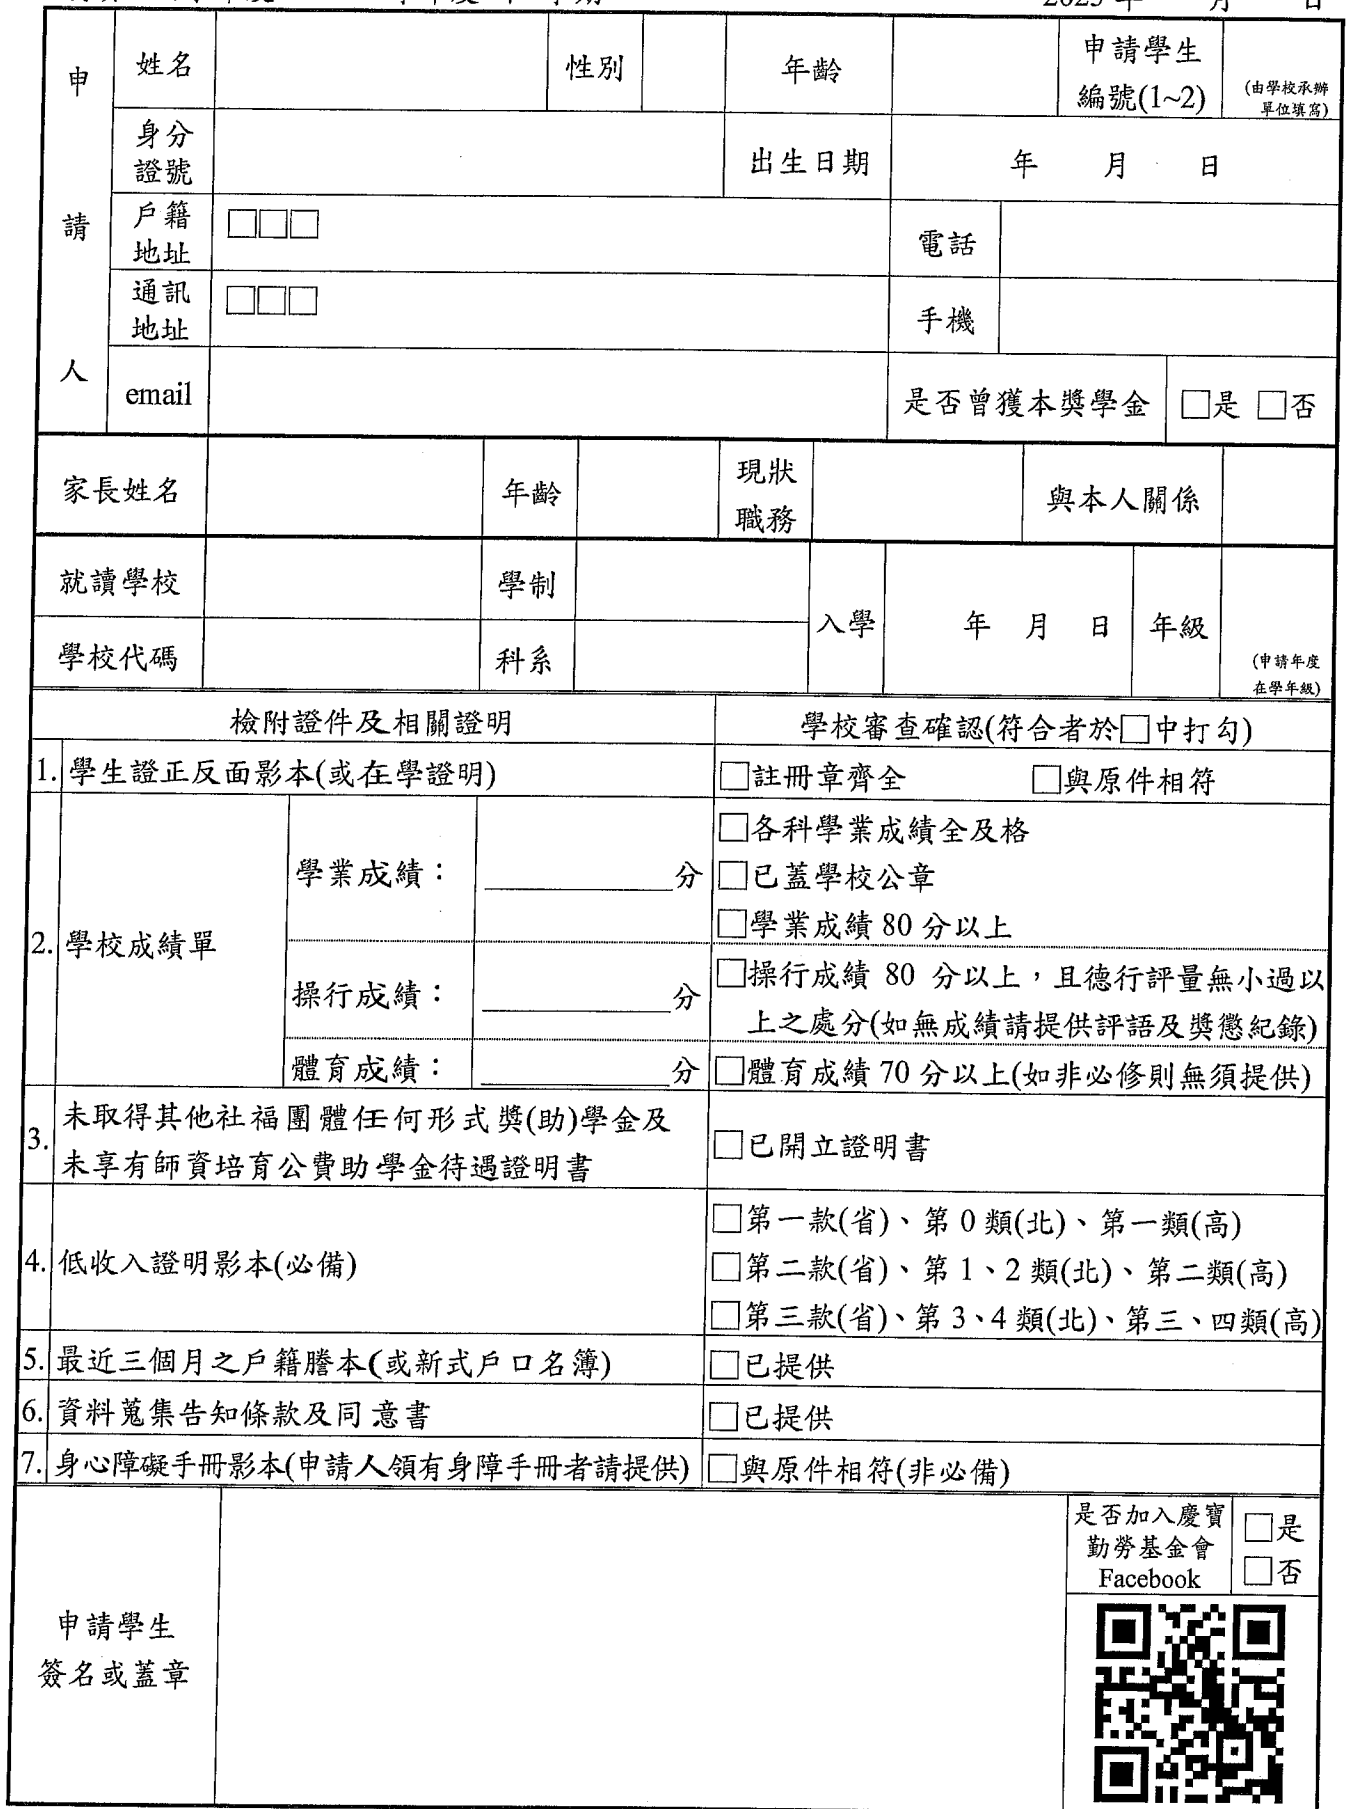 2025 年 月 日
申請人
姓名 性別 年齡 申請學生編號(1~2) (由學校承辦單位填寫)
身分證號 出生日期 年 月 日
戶籍地址 □□□ 電話
通訊地址 □□□ 手機
email 是否曾獲本獎學金 □是 □否
家長姓名 年齡 現狀職務 與本人關係
就讀學校 學制 入學 年 月 日 年級 (申請年度在學年級)
學校代碼 科系
檢附證件及相關證明 學校審查確認(符合者於□中打勾)
1. 學生證正反面影本(或在學證明) □註冊章齊全 □與原件相符
2. 學校成績單
學業成績: ____________分
□各科學業成績全及格
□已蓋學校公章
□學業成績 80 分以上
操行成績: ____________分
□操行成績 80 分以上,且德行評量無小過以
上之處分(如無成績請提供評語及獎懲紀錄)
體育成績: ____________分 □體育成績 70 分以上(如非必修則無須提供)
3. 未取得其他社福團體任何形式獎(助)學金及
未享有師資培育公費助學金待遇證明書
□已開立證明書
4. 低收入證明影本(必備)
□第一款(省)、第 0 類(北)、第一類(高)
□第二款(省)、第 1、2 類(北)、第二類(高)
□第三款(省)、第 3、4 類(北)、第三、四類(高)
5. 最近三個月之戶籍謄本(或新式戶口名簿) □已提供
6. 資料蒐集告知條款及同意書 □已提供
7. 身心障礙手冊影本(申請人領有身障手冊者請提供) □與原件相符(非必備)
申請學生
簽名或蓋章
是否加入慶寶
勤勞基金會
Facebook
□是
□否